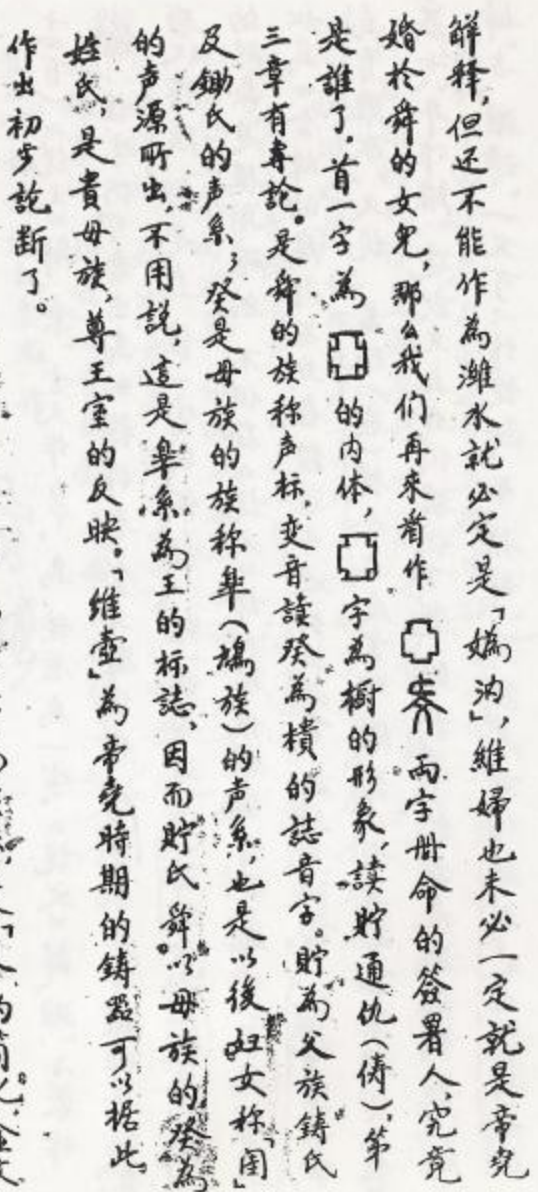 解释,但还不能作為潍水就必定是「嬀汭」,維婦也未必一定就是帝堯
婚於舜的女兒,那么我们再来看作 兩字册命的签署人,究竟
是誰了。首一字為 的内体, 字為櫥的形象,读貯通仇(俦),第
三章有專論。是舜的族称声标,变音讀癸為樻的誌音字。貯為父族鋳氏
及鋤氏的声系;癸是母族的族称 (鴂族)的声系,也是以後 女称「闺」
的声源所出,不用説,這是 系為王的标誌,因而貯氏舜以母族的癸為
姓氏,是貴母族,尊王室的反映。「維壺」為帝堯時期的鋳器可以据此
作出初步論断了。